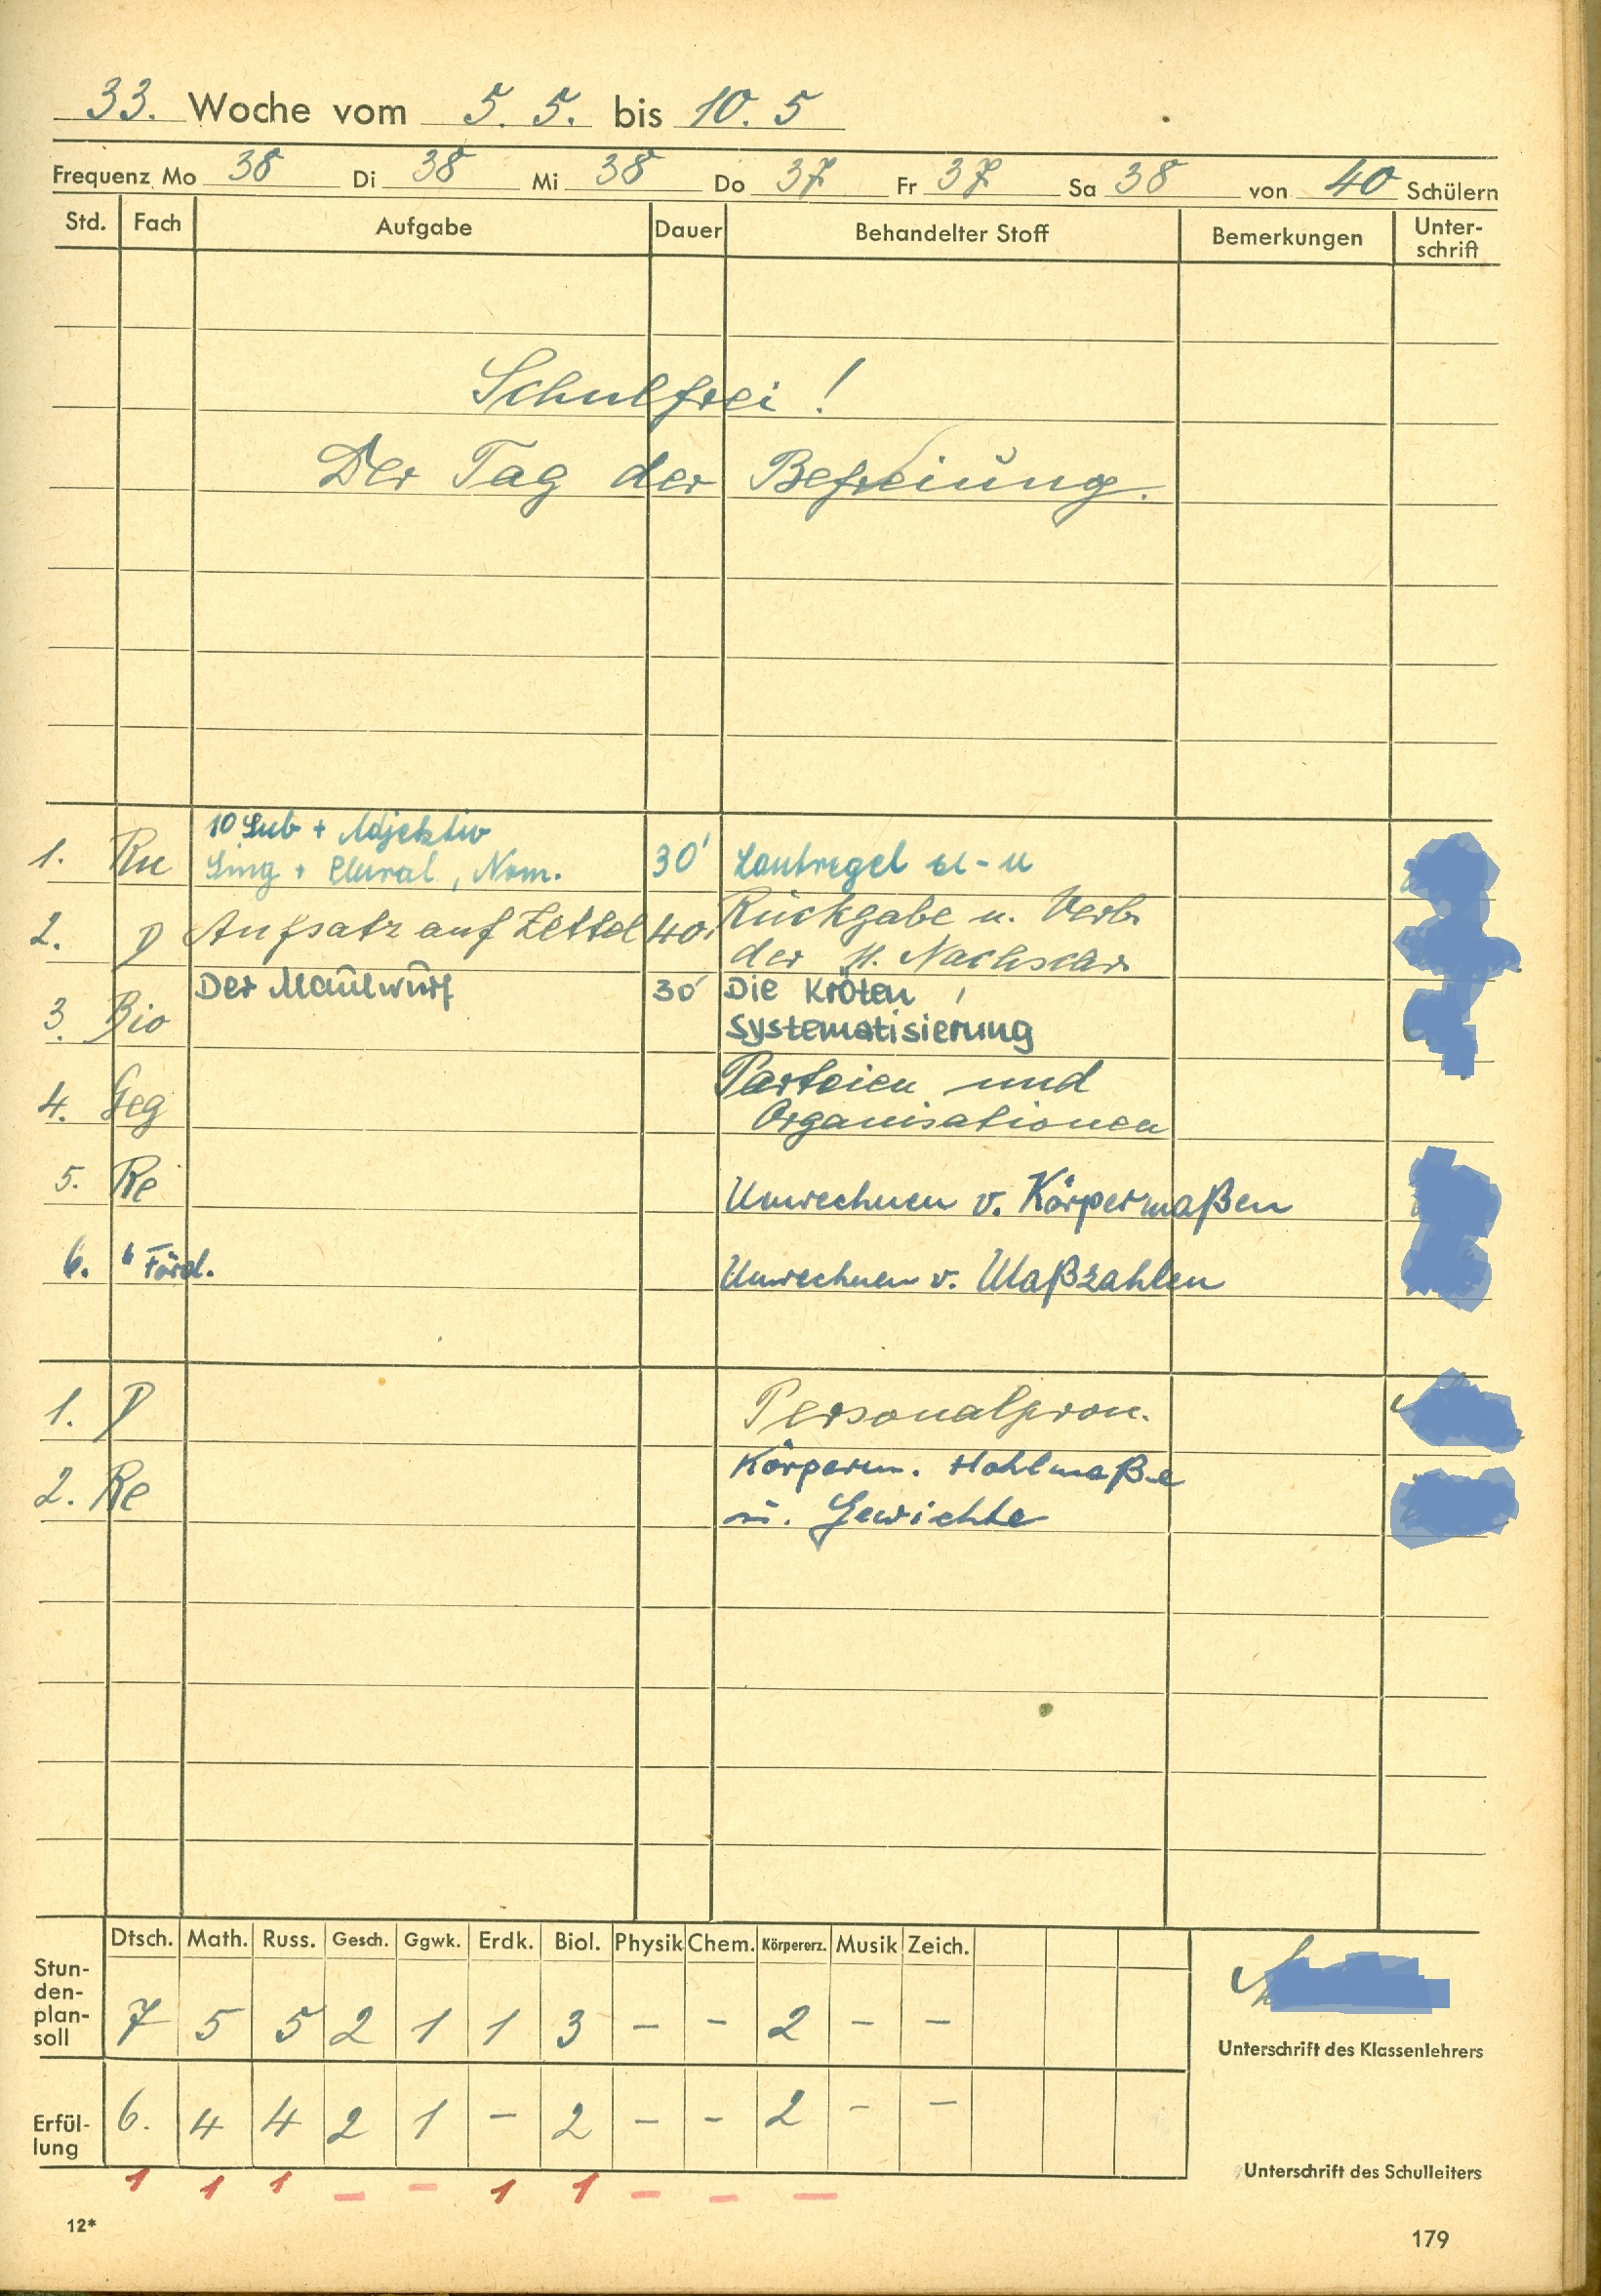 33. Woche vom 5. 5. bis 10. 5
Frequenz Mo 38 Di 38 Mi 38 Do 37 Fr 37 Sa 38 von 40 Schülern
Std. Fach Aufgabe Dauer Behandelter Stoff Bemerkungen Unter-
schrift
Schulfrei !
Der Tag der Befreiung.
10 Sub + Adjektiv
1. Ru Sing + Plural, Nom. 30' Lautregel ы - и
2. D Aufsatz auf Zettel 40' Rückgabe u. Verb.
der
3. Bio Der Maulwurf 30' Die Kröten,
Systematisierung
4. Geg Parteien und
Organisationen
5. Re Umrechnen v. Körpermaßen
6. " Förd. Umrechnen v. Maßzahlen
1. D Personalpron.
2. Re Körperm. Hohlmaße
u. Gewichte
Dtsch. Math. Russ. Gesch. Ggwk. Erdk. Biol. Physik Chem. Körpererz. Musik Zeich.
Stun-
den-
plan-
soll 7 5 5 2 1 1 3 – – 2 – –
Unterschrift des Klassenlehrers
Erfül-
lung 6. 4 4 2 1 – 2 – – 2 – –
1 1 1 – – 1 1 – – –
Unterschrift des Schulleiters
12*
179